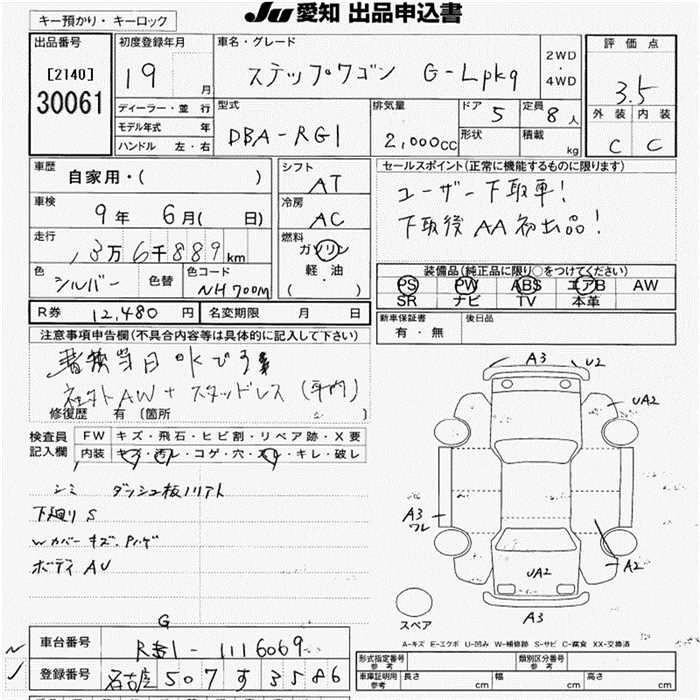 JU 愛知 出品申込書
キー預かり・キーロック
出品番号
[2140]
30061
初度登録年月
19 月
ディーラー・並 行
モデル年式 年
ハンドル 左・右
車名・グレード
ステップワゴン G-Lpkg
2WD
・
4WD
評 価 点
3.5
外 装 内 装
C C
型式
DBA-RG1
排気量
2,000cc
ドア 5
形状
定員 8人
積載 kg
車歴
自家用・( )
車検
9年 6月( 日)
走行
13万6千889km
色
シルバー
色替
色コード
NH700M
シフト
AT
冷房
AC
燃料
ガソリン
軽・油
( ・ )
セールスポイント(正常に機能するものに限ります)
ユーザー下取車!
下取後AA初出品!
装備品(純正品に限り○をつけてください)
PS PW ABS エアB AW
SR ナビ TV 本革
R券 12,480円
名変期限 月 日
新車保証書
有・無
後日品
注意事項申告欄(不具合内容等は具体的に記入して下さい)
当日OKです
社外AW+スタッドレス(車内)
修復歴 有 〔箇所 〕
検査員
記入欄
FW キズ・飛石・ヒビ割・リペア跡・X要
内装 キズ・汚レ・コゲ・穴・スレ・キレ・破レ
シミ ダッシュ板ノリアト
下廻りS
Wカバーキズ・
ボディAU
A3
U2
UA2
A3
ワレ
A2
UA2
A3
スペア
A-キズ E-エクボ U-凹み W-補修跡 S-サビ C-腐食 XX-交換済
車台番号
G
RG1-1116069
登録番号
名古屋 507 す 3586
形式指定番号
参考
類別区分番号
参考
車庫証明用
参考
長さ cm 幅 cm 高さ cm